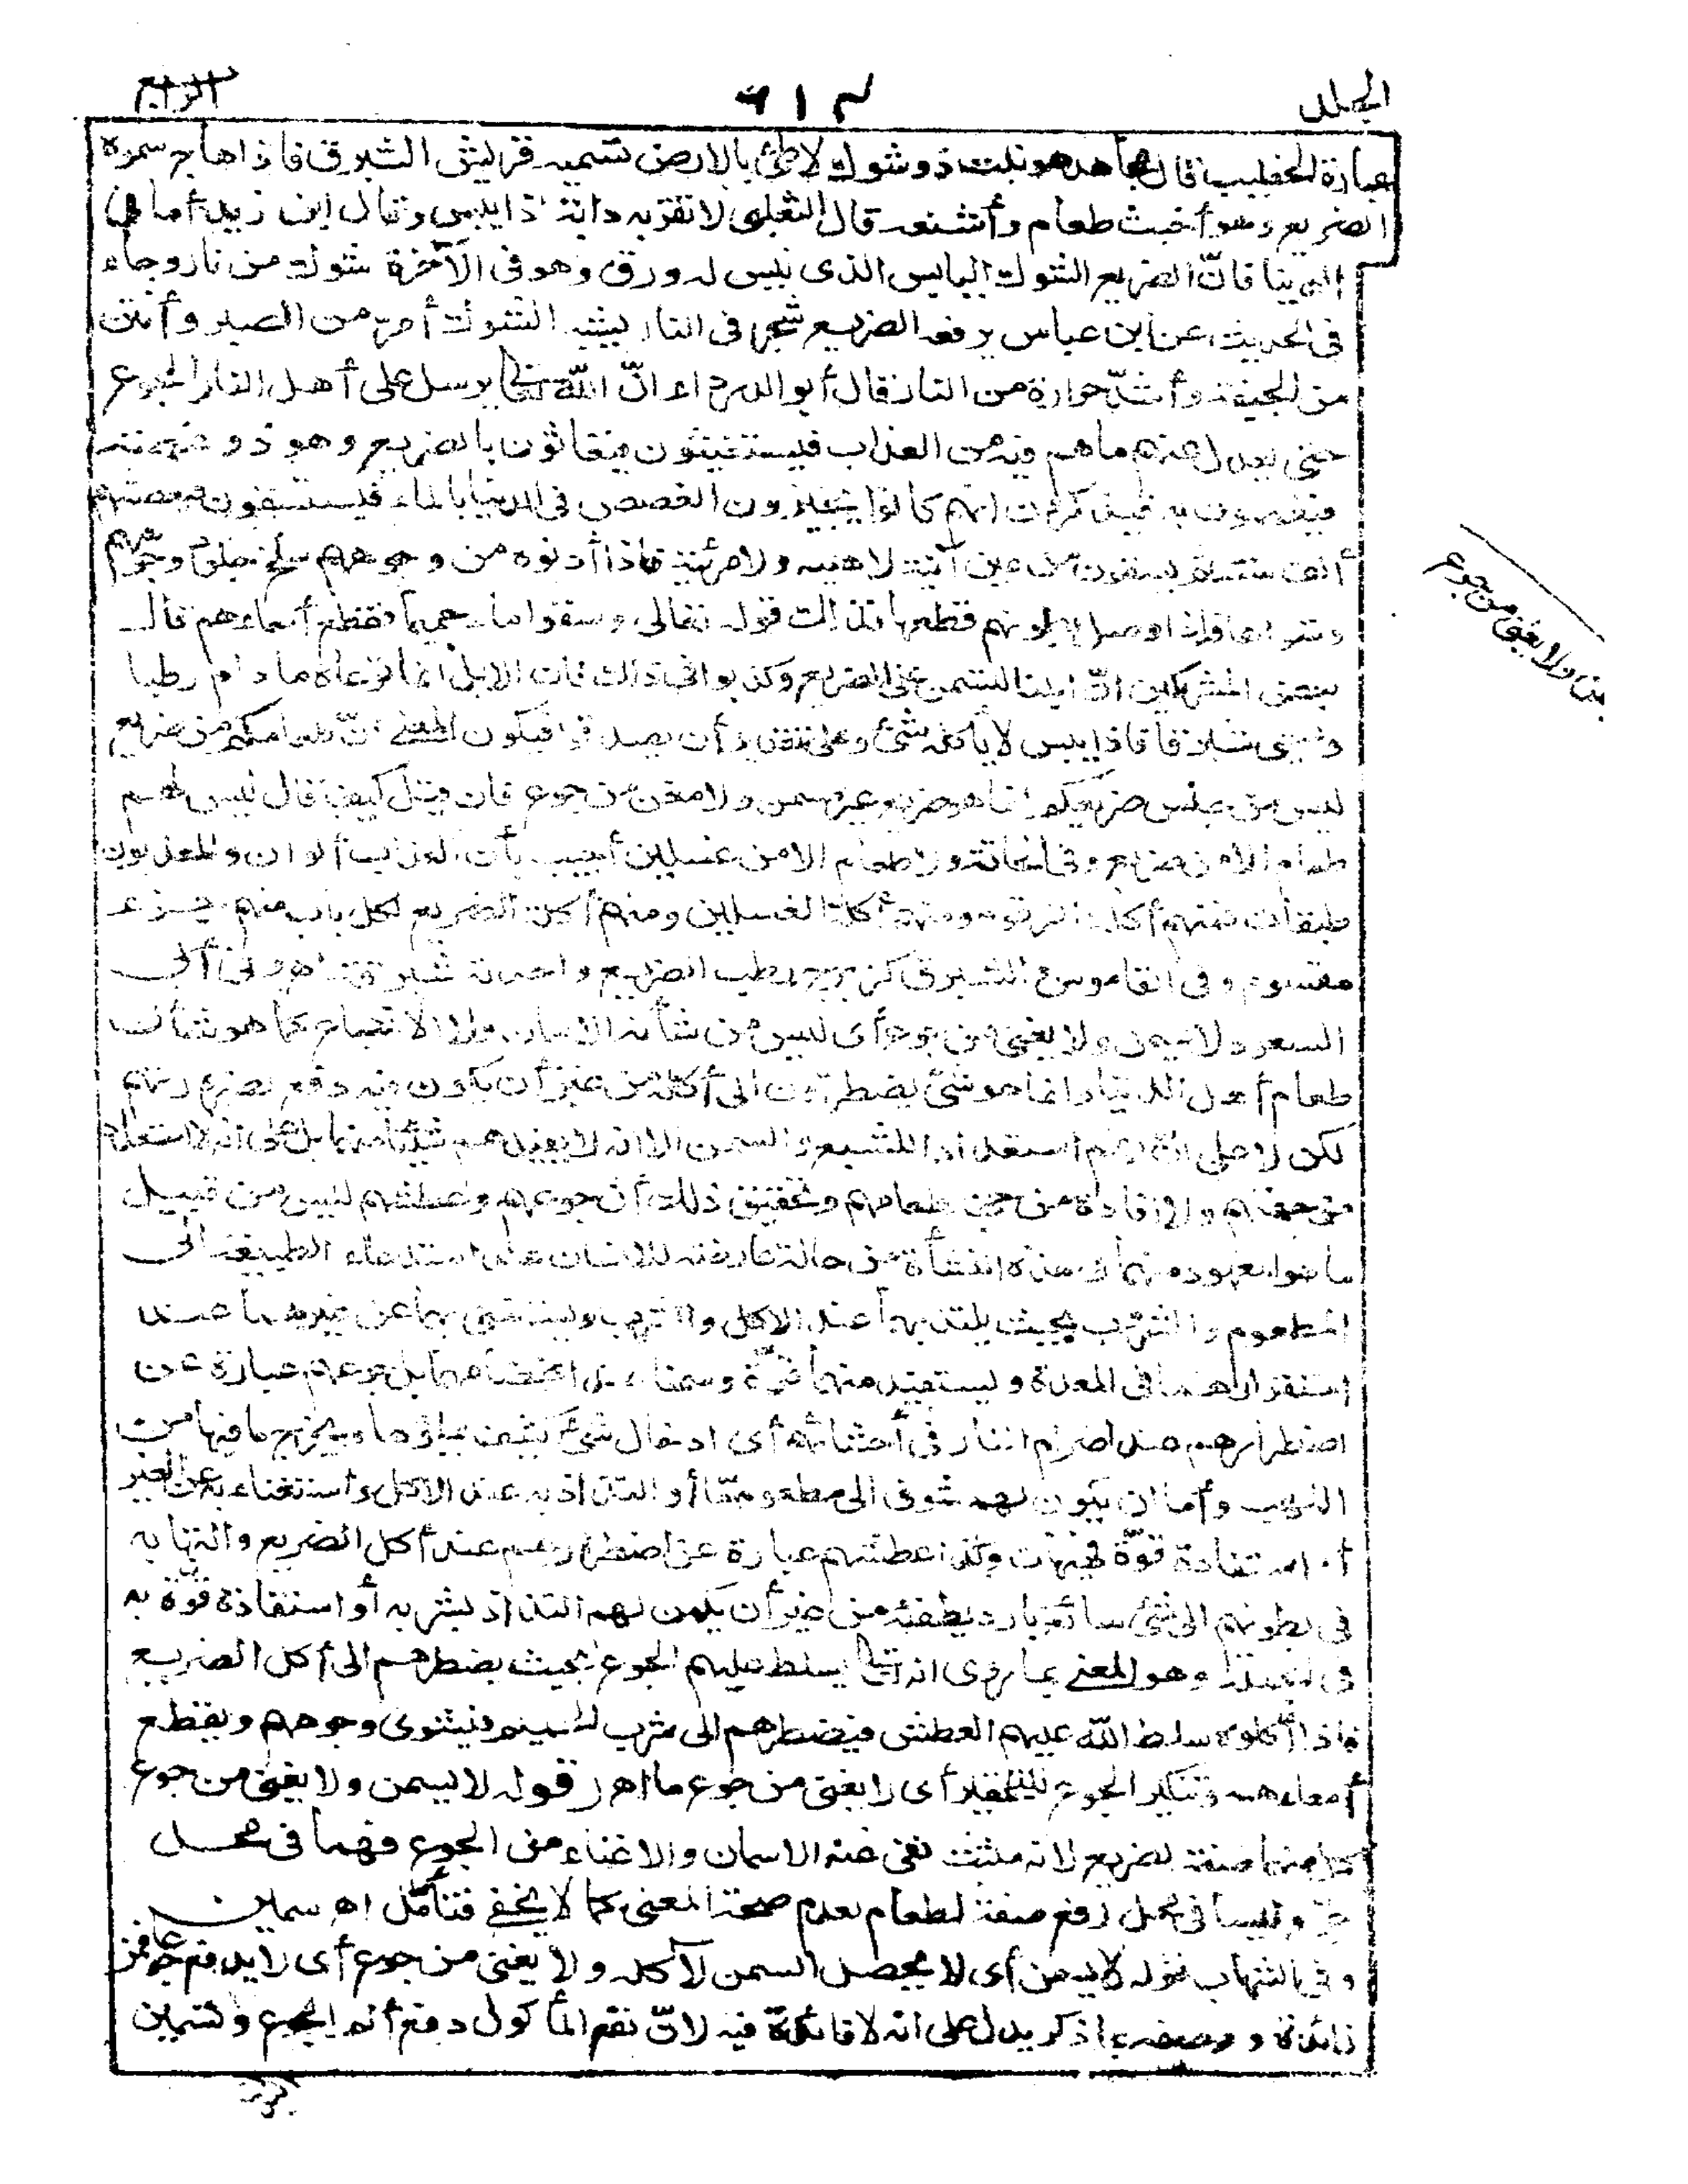 الجلد
٦١٤
الرابع
عبارة الخطيب قال مجاهد هو نبت ذو شوك لاطئ بالارض تسميه قريش الشبرق فاذا هاج سموه
الضريع وهو أخبث طعام وأشنعه قال الثعلبى لا تقربه دابة اذا يبس وقال ابن زيد أما فى
الدنيا فانّ الضريع الشوك اليابس الذى ليس له ورق وهو فى الآخرة شوك من نار وجاء
فى الحديث عن ابن عباس يرفعه الضريع شجر فى النار يشبه الشوك أمرّ من الصبر وأنتن
من الجيفة وأشدّ حرارة من النار قال أبو الدرداء انّ الله تعالى يرسل على أهل النار الجوع
حتى يعدل عندهم ما هم فيه من العذاب فيستغيثون فيغاثون بالضريع وهو ذو غصة
فيغصون به فيذكرون انهم كانوا يجيزون الغصص فى الدنيا بالماء فيستسقون فيعطشهم
ألف سنة ثم يسقون من عين آنية لا هنيئة ولا مريئة فاذا أدنوه من وجوههم سلخ جلود وجوههم
وشواها فاذا وصل بطونهم قطعها فذلك قوله تعالى وسقوا ماء حميما فقطع أمعاءهم قال
بعض المشركين انّ ابلنا لتسمن على الضريع وكذبوا فى ذلك فان الابل انما ترعاه ما دام رطبا
ويسمى شبرقا فاذا يبس لا يأكله شئ وعلى تقدير أن يصدقوا فيكون المعنى انّ طعامكم من ضريع
ليس من جنس ضريعكم انما هو ضريع غير مسمن ولا مغن من جوع فان قيل كيف قال ليس لهم
طعام الا من ضريع وفى الحاقة ولا طعام الا من غسلين أجيب بأن العذاب ألوان والمعذبون
طبقات فمنهم أكلة الزقوم ومنهم أكلة الغسلين ومنهم أكلة الضريع لكل باب منهم جزء
مقسوم وفى القاموس الشبرق كزبرج رطب الضريع واحدته شبرقة اهـ وفى أبى
السعود لا يسمن ولا يغنى من جوع أى ليس من شأنه الاسمان ولا الاشباع كما هو شأن
طعام أهل الدنيا وانما هو شئ يضطرون الى أكله من غير أن يكون فيه دفع لضرورتهم
لكن لا على انّ لهم استعدادا للشبع والسمن الا انه لا يفيدهم شيئا منهما بل على انه لا استعداد
من جهتهم ولا افادة من جهة طعامهم وتحقيق ذلك أن جوعهم وعطشهم ليس من قبيل
ما هو المعهود منهما فى هذه النشأة من حالة عارضة للانسان عند استدعاء الطبيعة الى
المطعوم والمشروب بحيث يلتذ بهما عند الاكل والشرب ويستغنى بهما عن غيرهما عند
استقرارهما فى المعدة ويستفيد منهما قوّة وسمنا عند انهضامهما بل جوعهم عبارة عن
اضطرارهم عند اضرام النار فى أحشائهم أى ادخال شئ كثيف يملؤها ويخرج ما فيها من
اللهب وأما ان يكون لهم شوق الى مطعوم مّا أو التذاذ به عند الاكل واستغناء به عن الغير
أو استفادة قوّة فهيهات وكذا عطشهم عبارة عن اضطرارهم عند أكل الضريع والتهابه
فى بطونهم الى شئ سائغ بارد يطفئه من غير أن يكون لهم التذاذ بشربه أو استفادة قوّة به
فى الجملة وهو المعنى بما روى انه تعالى يسلط عليهم الجوع بحيث يضطرهم الى أكل الضريع
فاذا أكلوه سلط الله عليهم العطش فيضطرهم الى شرب الحميم فيشوى وجوههم ويقطع
أمعاءهم وتنكير الجوع للتحقير أى لا يغنى من جوع ما اهـ قوله لا يسمن ولا يغنى من جوع
كل منهما صفة لضريع لانه مثبت نفى عنه الاسمان والاغناء من الجوع فهما فى محل
جرّ وليسا فى محل رفع صفة لطعام لعدم صحة المعنى كما لا يخفى فتأمّل اهـ سمين
وفى الشهاب قوله لا يسمن أى لا يحصل السمن لآكله ولا يغنى من جوع أى لا يدفع جوعا فمن
زائدة ووصفه بما ذكر يدل على انه لا فائدة فيه لانّ نفع المأكول دفع ألم الجوع وتسمين
ولا يغنى من جوع